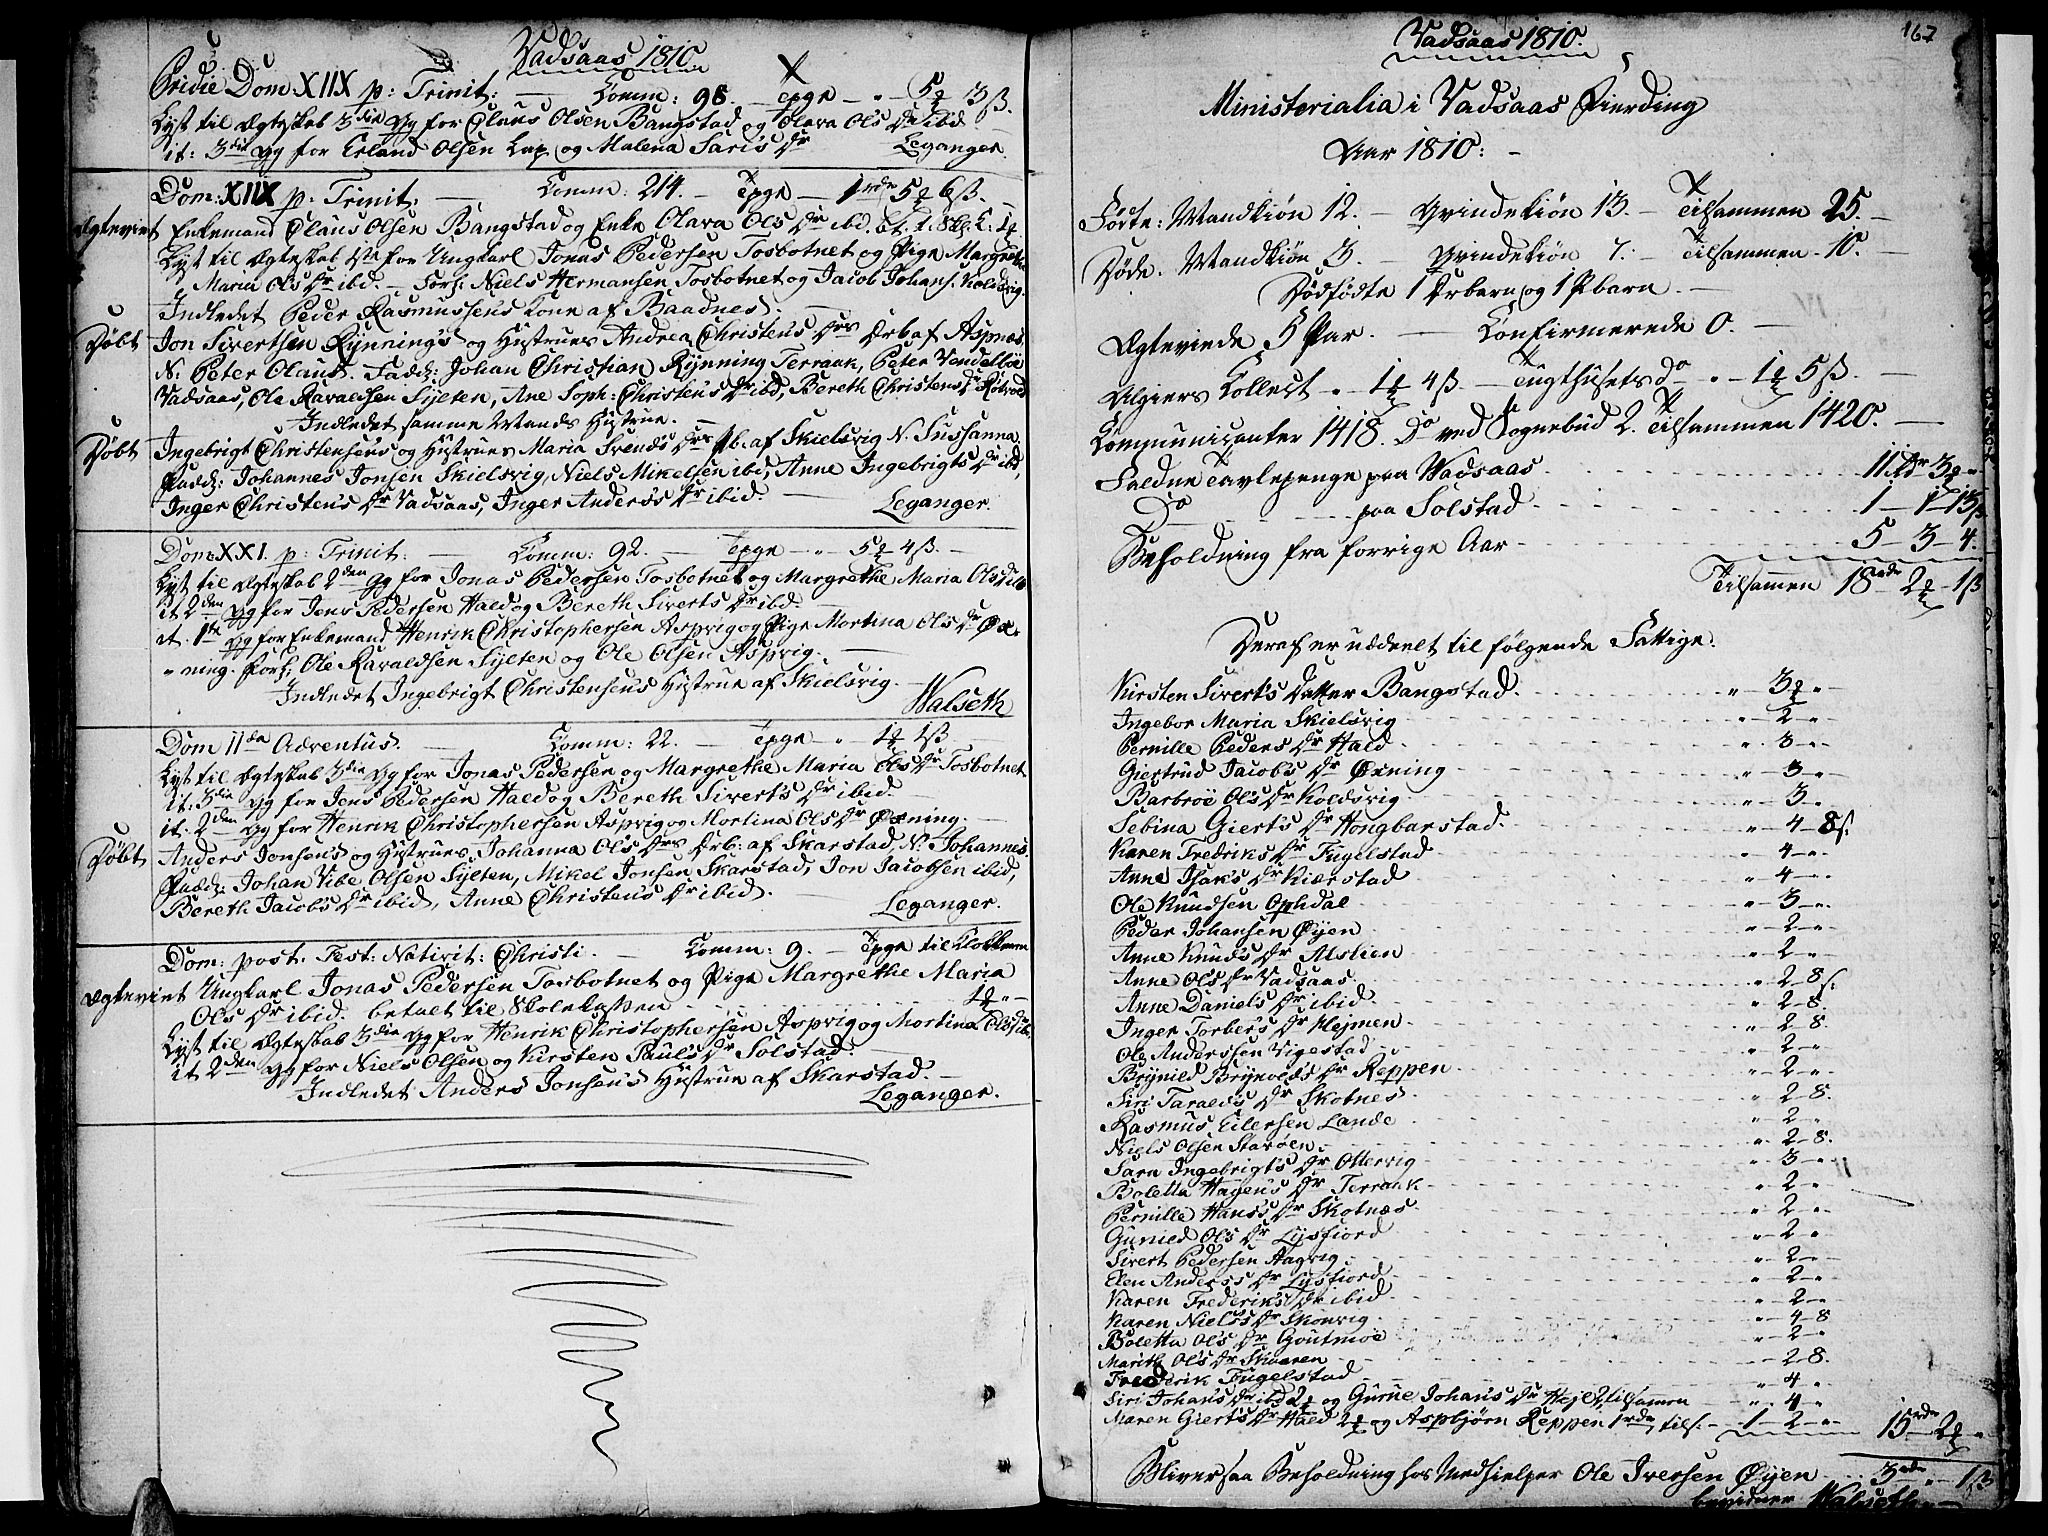 Vadsaas 1810
Pridie Dom XIIX p: Trinit: — Comm: 98. — Tpge — " — 5 13ß.
Lyst til Ægteskab 3die Gg for Claus Olsen Bangstad og Olava Ols Dr ibid
it: 3die Gg for Erland Olsen Lap og Malena Saris Dr Leganger.
Dom: XIIX p: Trinit: — Comm: 214. — Tpge — 1rdr 5 6ß.
Ægteviet Enkemand Claus Olsen Bangstad og Enke Olava Ols Dr ibd.
Lyst til Ægteskab 1ste for Ungkarl Jonas Pedersen Tosbotnet og Pige Margrethe
Maria Ols Dr ibd. — Forl: Niels Hermansen Tosbotnet og Jacob Johans. Koldsvig.
Indledet Peder Rasmussens Kone af Baadnes.
Døbt Jon Sivertsen Rÿnning's og Hustrues Andrea Christens Drs Drb af Aspnæs
N: Peter Olaus. Fadd: Johan Christian Rÿnning Terraak, Peter Vendelboe
Vadsaas, Ole Havaldsen Sÿlten, Ane Soph: Christens Dr ibd, Bereth Christens Dr
Indledet samme Mands Hustrue.
Døbt Ingebrigt Christensens og Hustrues Maria Svends Drs Pb: af Skielsvig N. Sussanna.
Fadd: Johannes Jonsen Skielsvig, Niels Mikelsen ibd, Anne Ingebrigts Dr ibd,
Inger Christens Dr Vadsaas, Inger Anders's Dr ibid. — Leganger.
Dom: XXI. p: Trinit: — Comm: 92. — Tpge — " 5 4ß. —
Lyst til Ægteskab 2den Gg for Jonas Pedersen Tosbotnet og Margrethe Maria Ols Dr ibd
it 2den Gg for Jens Pedersen Hald og Bereth Siverts Dr ibd.
it. 1ste Gg for Enkemand Henrik Christophersen Aspvig og Pige Mortina Ols Dr Øx-
" ning. Forl: Ole Havaldsen Sÿlten og Ole Olsen Aspvig. —
Indledet Ingebrigt Christensens Hustrue af Skielsvig. —
Walseth
Dom 11da Adventus. — Comm: 22. — Tpge — " 1 1ß
Lyst til Ægteskab 3die Gg for Jonas Pedersen og Margrethe Maria Ols Dr Tosbotnet
it: 3die Gg for Jens Pedersen Hald og Bereth Sivert's Dr ibid.
it. 2den Gg for Henrik Christophersen Aspvig og Mortina Ols Dr Øxning. —
Døbt Anders Jonsen's og Hustrues Johanna Ols Drs Drb: af Skarstad, N: Johannes.
Fadd: Johan Vibe Olsen Sÿlten, Mikel Jonsen Skarstad, Jon Jacobsen ibid,
Bereth Jacob's Dr ibid, Anne Christens Dr ibid. — Leganger.
Dom: post. Fest: Nativit: Christi. — Comm: 9. — Tpge til Klokkeren
Ægteviet Ungkarl Jonas Pedersen Tosbotnet og Pige Margrethe Maria
Ols Dr ibid. betalt til Skolekassen 1 " —
Lyst til Ægteskab 3die Gg for Henrik Christophersen Aspvig og Mortina Ols Dr ib.
it 2den Gg for Niels Olsen og Kirsten Paul's Dr Solstad. —
Indledet Anders Jonsen's Hustrue af Skarstad. —
Leganger.
167
Vadsaas 1810.
Ministerialia i Vadsaas Fierding
Aar 1810: —
Fødte: Mandkiøn 12. — Qvindekiøn 13. — Tilsammen 25. —
Døde. Mandkiøn 3. — Qvindekiøn 7. — Tilsammen 10. —
Dødfødte 1 Drbarn og 1 Pbarn. —
Ægteviede 5 Par. — Confirmerede 0. —
Algiers Collect — " — 1 4ß — Tugthusets Do — " — 1 5ß. —
Communicanter 1418. Do ved Sognebud 2. Tilsammen 1420. —
Faldne Tavlepenge paa Vadsaas 11rdr 3 "
Do — paa Solstad 1 — 1 — 13ß
Beholdning fra forrige Aar 5 — 3 — 4.
Tilsamen 18rdr 2 — 1ß
Deraf er uddeelt til følgende Fattige.
Kirsten Sivert's Datter Bangstad. " — 3 "
Ingebor Maria Skielsvig " — 2 — "
Pernille Peders Dr Hald " — 3 — "
Giertrud Jacob's Dr Øxning " — 3 — "
Barbroe Ol's Dr Koldsvig " — 3 — "
Sebina Giert's Dr Hongbarstad. " — 4 — 8ß.
Karen Fredriks Dr Fugelstad " — 4 — "
Anne Isak's Dr Kiærstad " — 4 — "
Ole Knudsen Ophdal " — 3 — "
Peder Johansen Øÿen " — 2 — "
Anne Knud's Dr Alslien " — 2 — "
Anne Ols Dr Vadsaas " — 2 — 8ß:
Anne Daniels Dr ibid " — 2 — 8.
Inger Torber's Dr Klejmen " — 2 — 8.
Ole Anderssen Vigestad " — 2 — "
Brÿnild Brÿnold's Dr Reppen " — 2 — "
Siri Tarald's Dr Skotnes " — 2 — 8.
Rasmus Eilersen Lande " — 2 — "
Niels Olsen Starøen " — 2 — 8.
Sara Ingebrigt's Dr Ottervig " — 3 — "
Boletta Hagen's Dr Terraak " — 2 — "
Pernille Hans's Dr Skotnæs " — 2 — "
Gunild Ol's Dr Lÿsfiord " — 2 — "
Sivert Pedersen Aagvig " — 2 — "
Elen Anders's Dr Lÿsfiord " — 2 — "
Karen Frederiks's Dr ibid " — 2 — "
Karen Niels's Dr Skonvig " — 4 — 8
Boletta Ol's Dr Goutmoe " — 2 — "
Marith Ol's Dr Skaaren — 2 — 8.
Frederik Fugelstad " — 4 — "
Siri Johan's Dr ibd 2 og Gurine Johan's Dr Heÿl 2, tilsamen " — 4 — "
Maren Giert's Dr Hald 2 og Aspbjørn Reppen 1rdr, tils: — 1 — 2 — " 15rdr 2 "
Bliver saa Beholdning hos Medhielper Ole Iversen Øÿen 3rdr " 1ß
bevidner Walseth